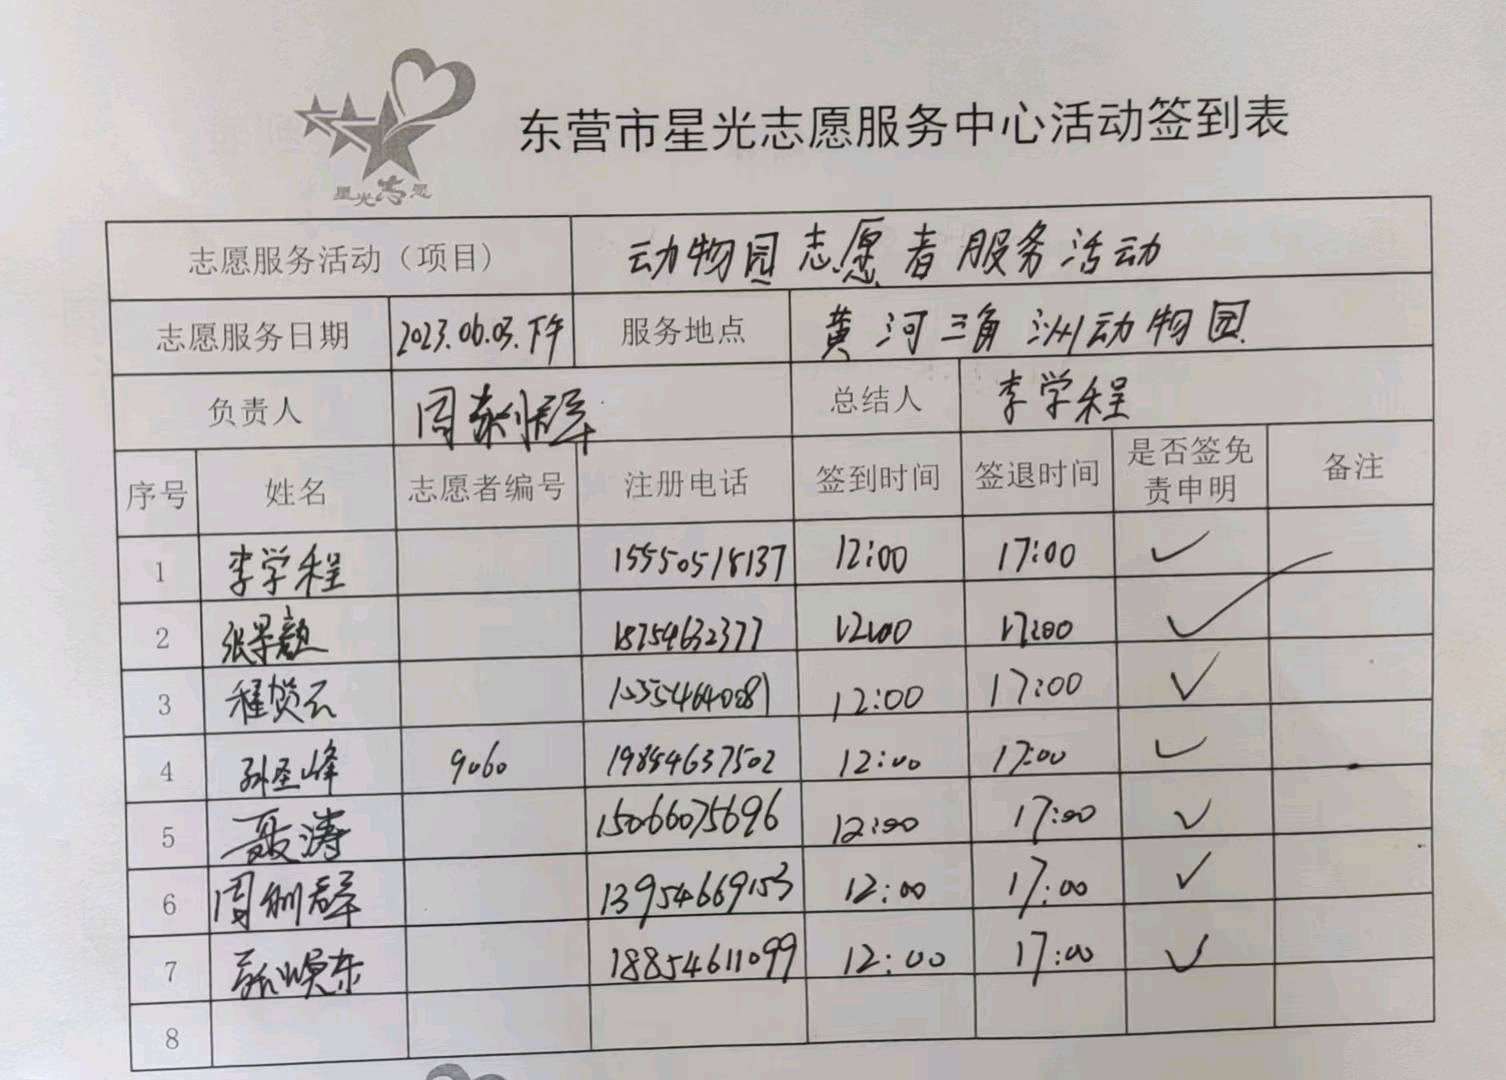 星光志愿
东营市星光志愿服务中心活动签到表
志愿服务活动（项目） 动物园志愿者服务活动
志愿服务日期 2023.06.03.下午 服务地点 黄河三角洲动物园
负责人 总结人 李学程
序号 姓名 志愿者编号 注册电话 签到时间 签退时间 是否签免责申明 备注
1 李学程 15550518137 12:00 17:00 ✓
2 18754632377 12:00 17:00 ✓
3 12:00 17:00 ✓
4 孙圣峰 9060 19854637502 12:00 17:00 ✓
5 聂涛 15066075696 12:00 17:00 ✓
6 13954669153 12:00 17:00 ✓
7 18854611099 12:00 17:00 ✓
8